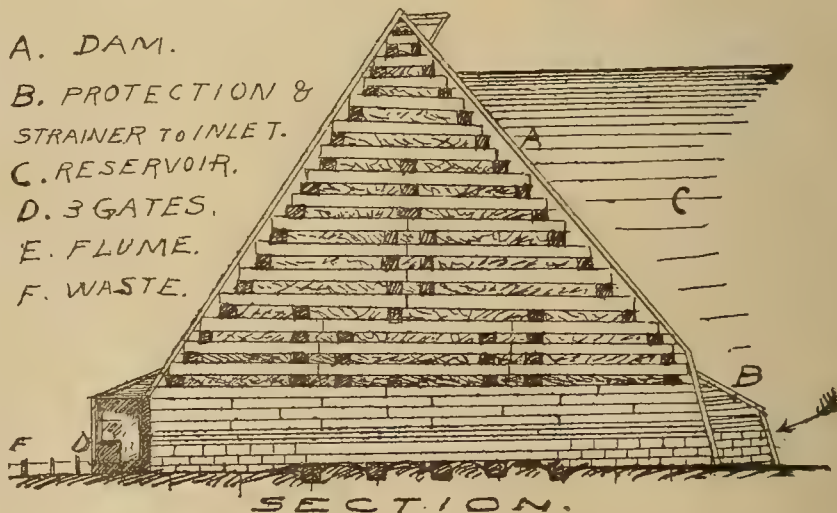 A. DAM.
B. PROTECTION &
STRAINER TO INLET.
C. RESERVOIR.
D. 3 GATES.
E. FLUME.
F. WASTE.
A
C
B
F
D
SECTION.